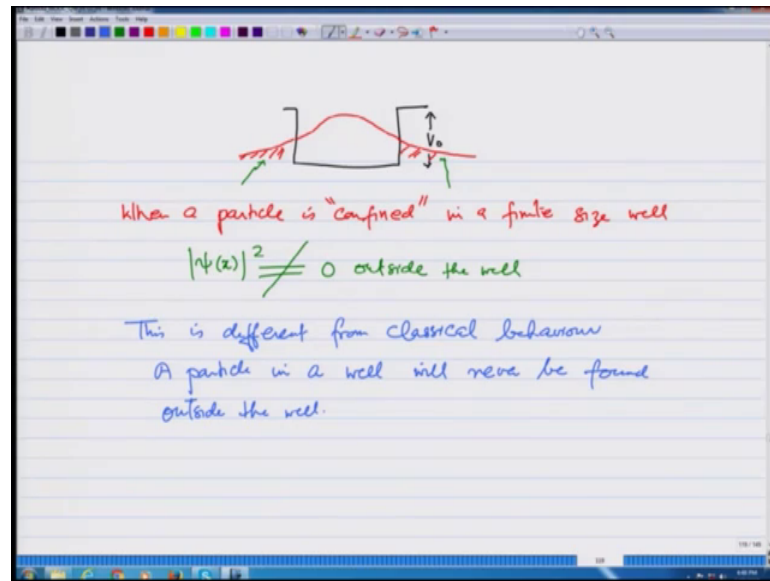 File Edit View Insert Actions Tools Help
V₀
When a particle is "confined" in a finite size well
|ψ(x)|² ≠ 0 outside the well
This is different from classical behaviour
A particle in a well will never be found
outside the well.